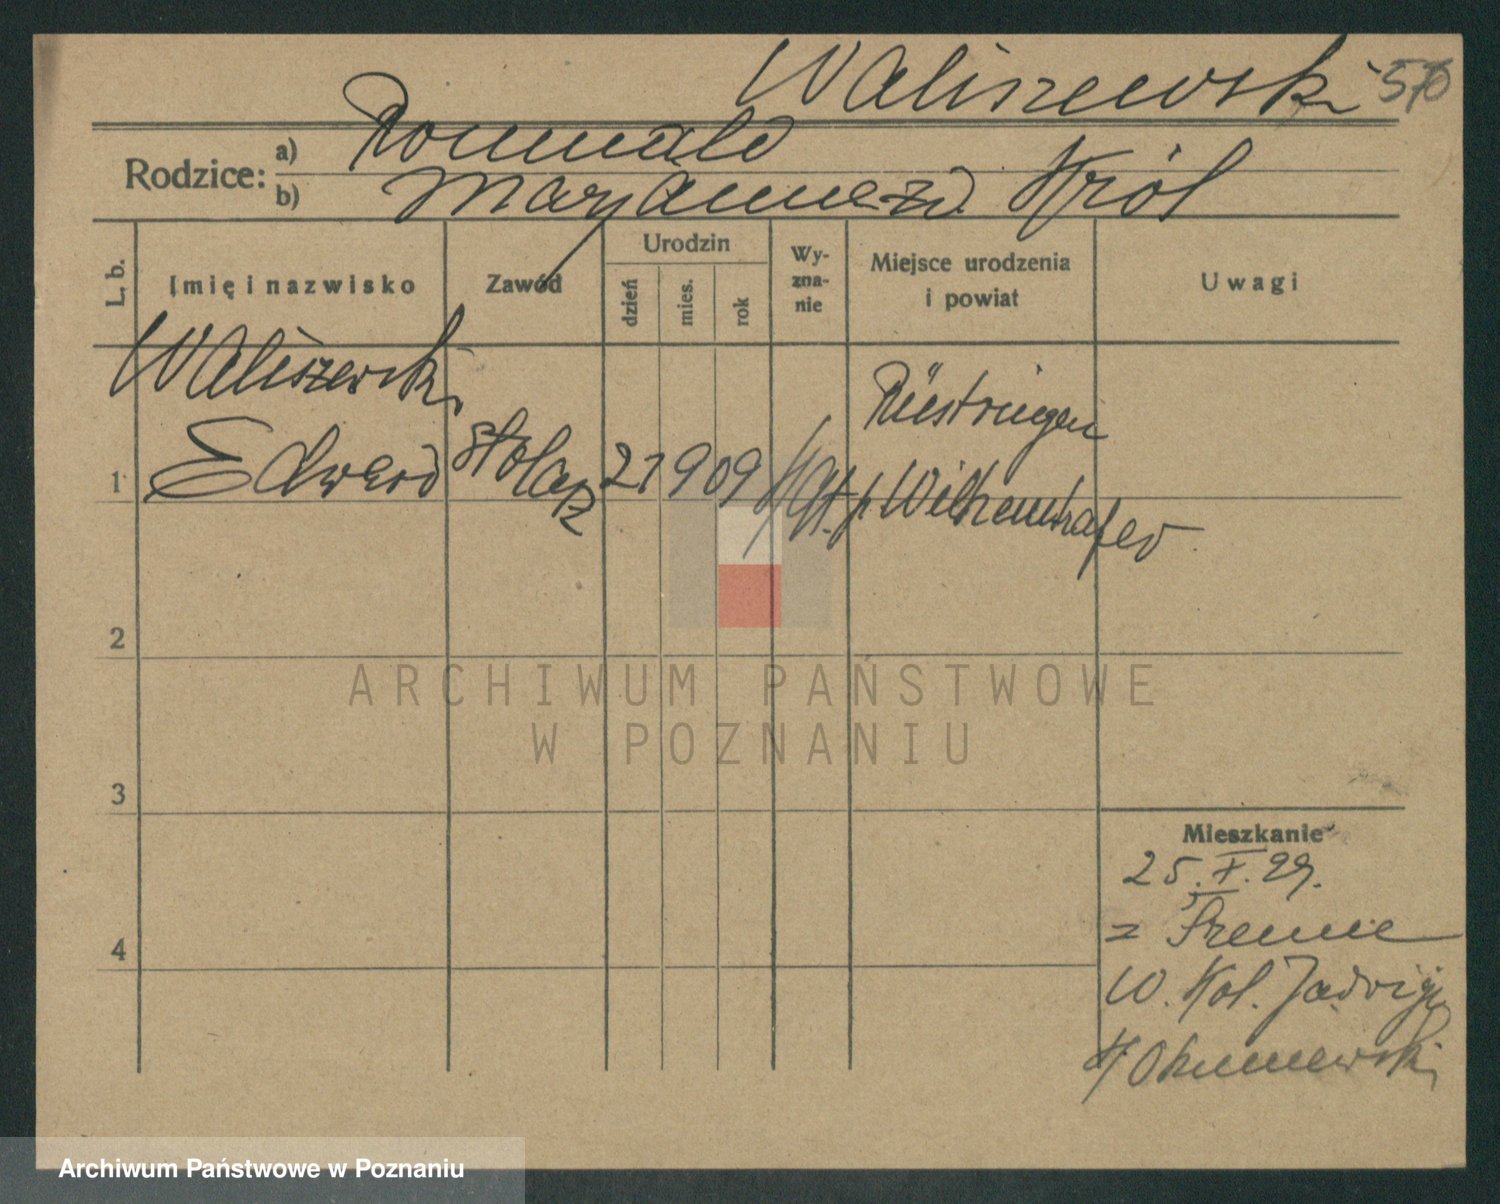 Waliszewski 570
Rodzice: a) Romuald
b) Maryanna zd. Król
L. b. Imię i nazwisko Zawód Urodzin dzień mies. rok Wy-zna-nie Miejsce urodzenia i powiat Uwagi
Waliszewski
Edward stolarz 21 9 09 Kat. Rüstringen
1 p. Wilhemshafen
2
3
4
Mieszkanie
25. X. 29.
z Śremie
w. Kol. Jadwigi
ARCHIWUM PAŃSTWOWE
W POZNANIU
Archiwum Państwowe w Poznaniu